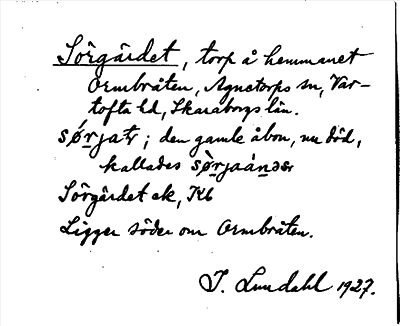 Sörgärdet, torp å hemmanet
Ormbråten, Agnetorps sn, Var-
tofta hd, Skaraborgs län.
sǿrjatɩ; den gamle åbon, nu död,
kallades sø̀rjaánдər
Sörgärdet ek, Kb
Ligger söder om Ormbråten.
I. Lundahl 1927.